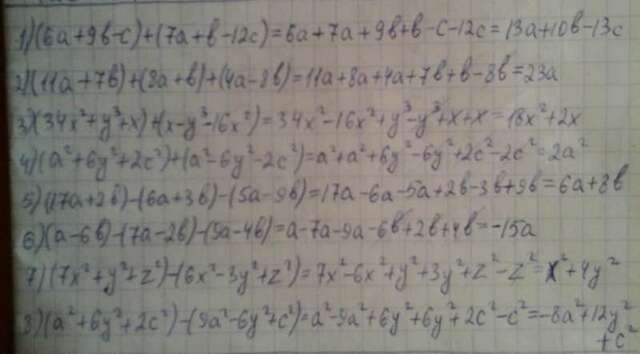 1)(6a+9в-c)+(7a+в-12c)=6a+7a+9в+в-c-12c=13a+10в-13c
2)(11a+7в)+(8a+в)+(4a-8в)=11a+8a+4a+7в+в-8в=23a
3)(34x²+y³+x)+(x-y³-16x²)=34x²-16x²+y³-y³+x+x=18x²+2x
4)(a²+6y²+2c²)+(a²-6y²-2c²)=a²+a²+6y²-6y²+2c²-2c²=2a²
5)(17a+2в)-(6a+3в)-(5a-9в)=17a-6a-5a+2в-3в+9в=6a+8в
6)(a-6в)-(7a-2в)-(9a-4в)=a-7a-9a-6в+2в+4в=-15a
7)(7x²+y²+z²)-(6x²-3y²+z²)=7x²-6x²+y²+3y²+z²-z²=x²+4y²
8)(a²+6y²+2c²)-(9a²-6y²+c²)=a²-9a²+6y²+6y²+2c²-c²=-8a²+12y²
+c²